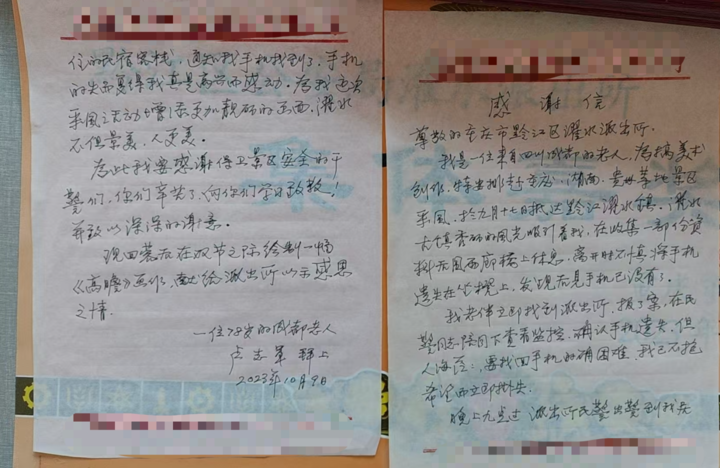 感谢信
尊敬的重庆市黔江区濯水派出所.
我是一位来自四川成都的老人,为搞美术
创作,特出排赴重庆,湖南,贵州等地景区
采风,于九月十七日抵达黔江濯水镇,濯水
古镇秀丽的风光吸引着我,在收集一部份资
料后风雨廊桥上休息,离开时不慎将手机
遗失在坐櫈上,发现后见手机已没有了.
我老伴立即找到派出所,报了案,在民
警同志陪同下查看监控,确认手机遗失,但
人海茫茫,要找回手机的确困难,我已不抱
希望而立即挂失.
晚上九点过派出所民警出警到我居
住的民宿客栈,通知我手机找到了,手机
的失而复得我真是高兴而感动.为我这次
采风活动增添更加靓丽的画面,濯水
不但景美,人更美.
为此,我要感谢保卫景区安全的干
警们,你们辛苦了,向你们学习致敬!
并致以深深的谢意.
现回蓉后在双节之际绘制一幅
《高瞻》画作,献给派出所以示感恩
之情.
一位78岁的成都老人
拜上
2023年10月9日